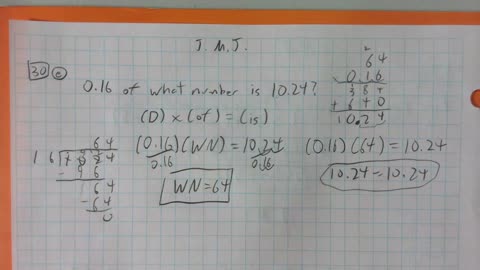 J. M. J.
30 c
0.16 of what number is 10.24?
(D) x (of) = (is)
64
x 0.16
384
+ 640
10.24
64
16
- 96
64
- 64
0
(0.16)(WN) = 10.24
0.16 0.16
WN = 64
(0.16)(64) = 10.24
10.24 = 10.24